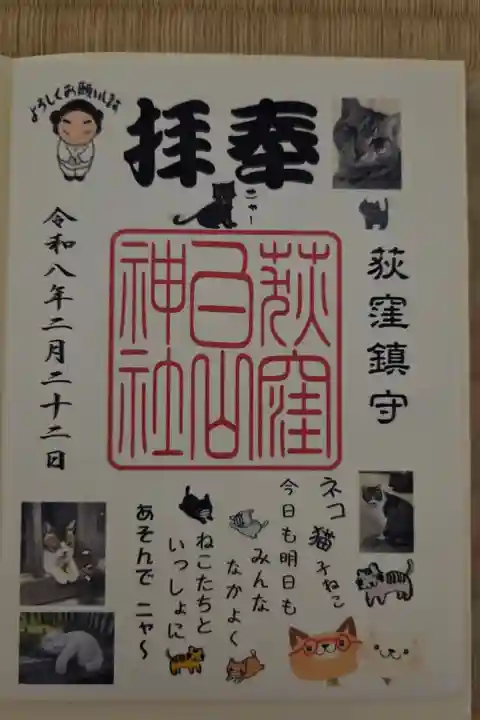 よろしくお願いします
奉拝
ニャー
荻窪鎮守
荻窪
白山
神社
令和八年二月二十二日
ネコ 猫 子ねこ
今日も明日も
みんな
なかよく
ねこたちと
いっしょに
あそんで ニャ〜